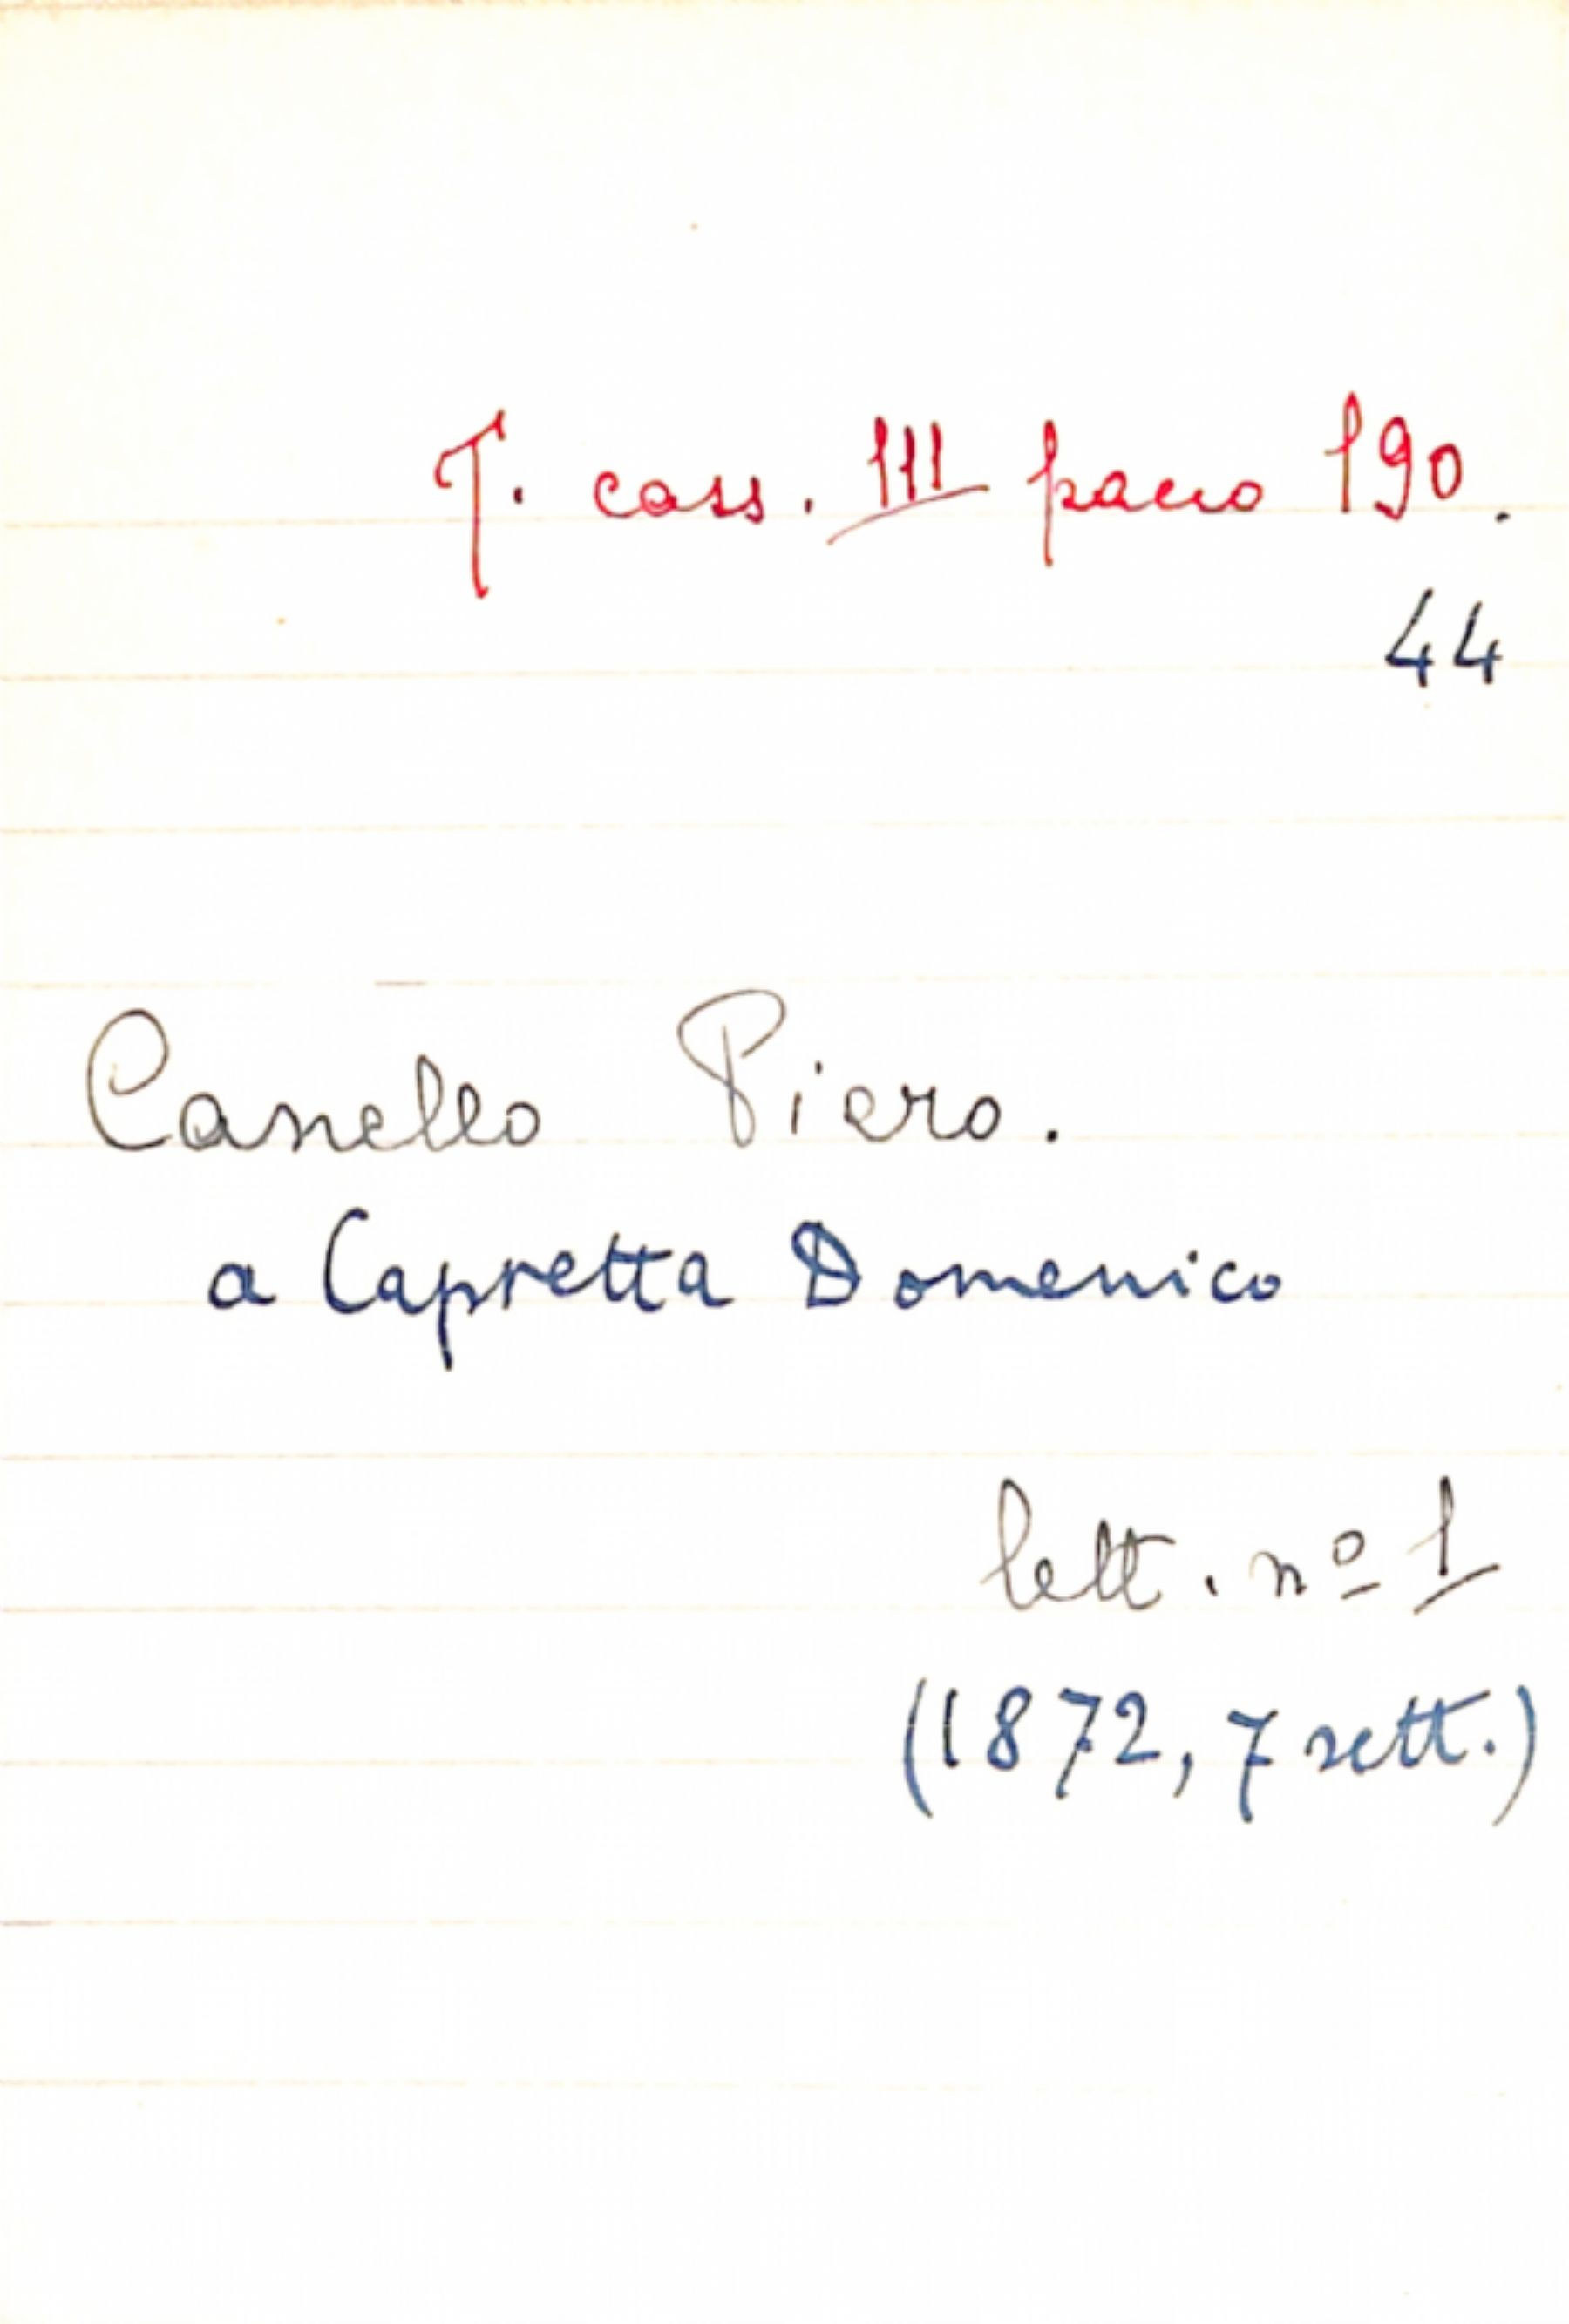 T. cass. III pacco 190.
44
Canello Piero.
a Capretta Domenico
lett. nº 1
(1872, 7 sett.)